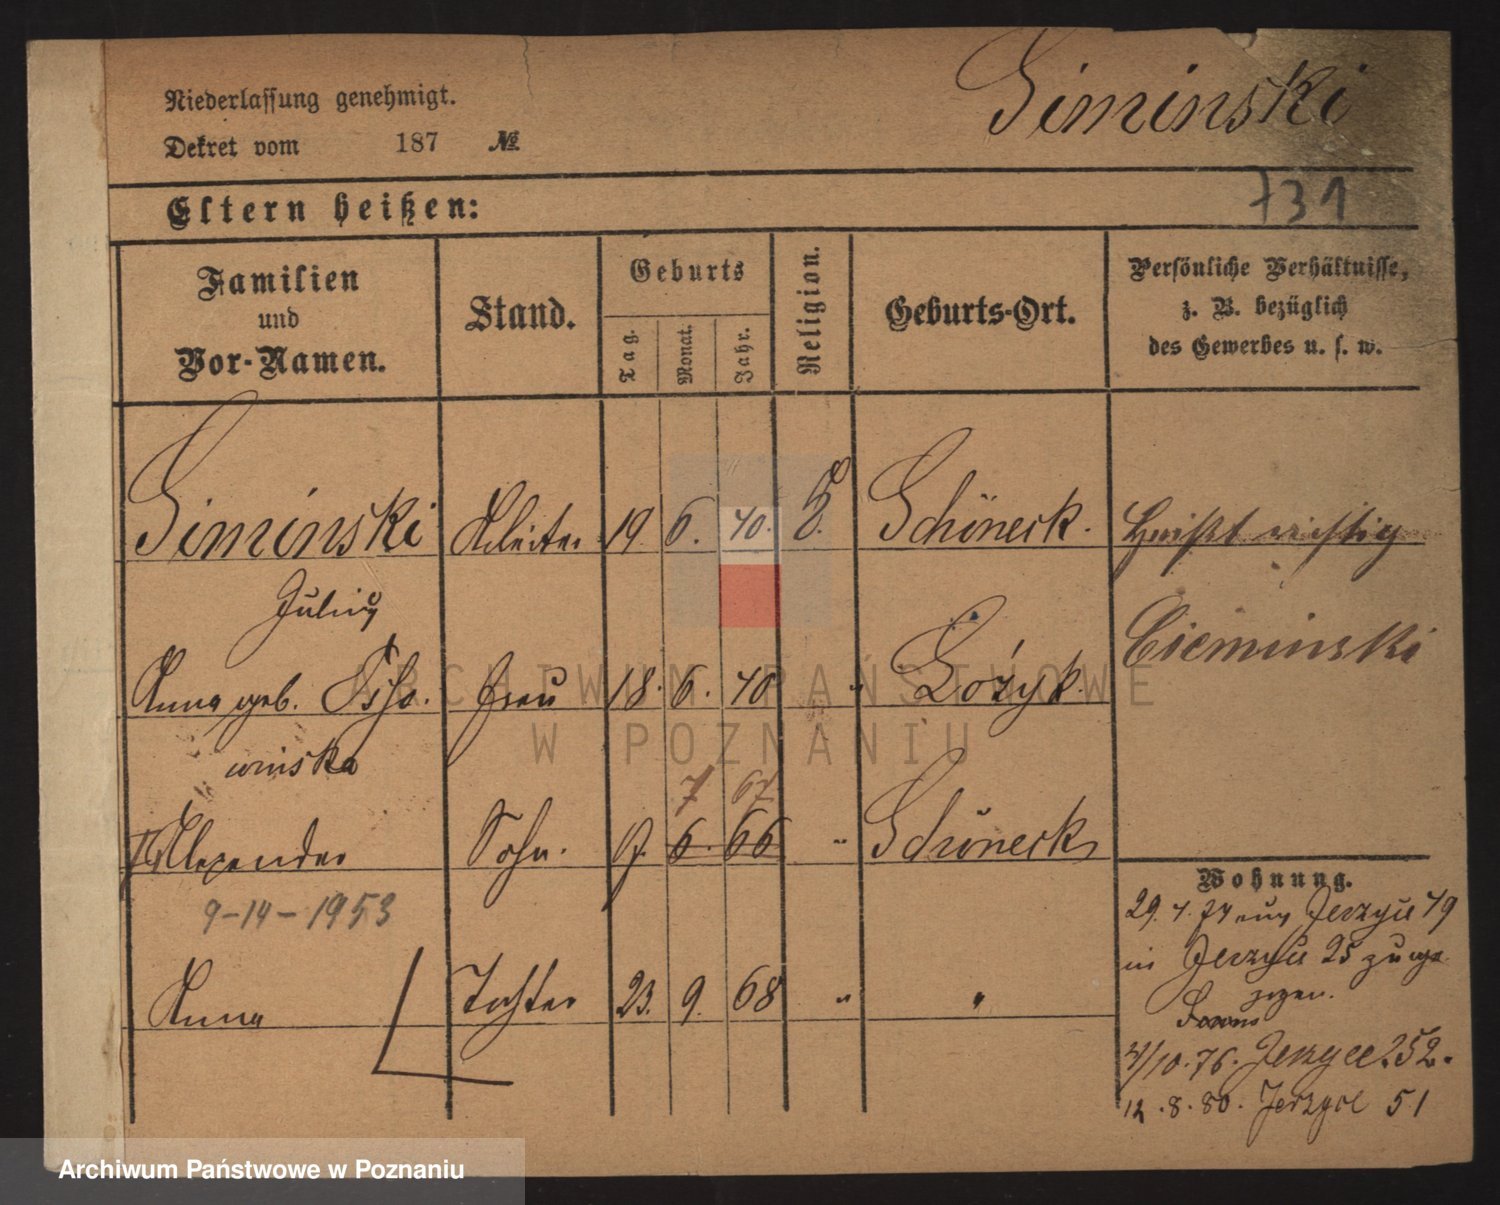 Niederlassung genehmigt.
Dekret vom 187 №
Siminski
731
Eltern heißen:
Familien
und
Vor-Namen.
Stand.
Geburts
Tag.
Monat.
Jahr.
Religion.
Geburts-Ort.
Persönliche Verhältnisse,
z. B. bezüglich
des Gewerbes u. s. w.
Siminski Arbeiter 19. 6. 40. Schöneck. Heißt richtig
Julius
Cieminski
Anna geb. Frau 18. 6. 40 "
winska
7 67
Alexander Sohn. 9. 6. 66 " Schöneck
9-14-1953
Anna Tochter 23. 9. 68 " "
Wohnung.
29. 4. 74 aus Jerzyce 49
in Jerzyce 25 zuge
zogen.
4/10. 76. Jerzyce 252.
12. 8. 80. Jerzyce 51
ARCHIWUM PAŃSTWOWE
W POZNANIU
Archiwum Państwowe w Poznaniu